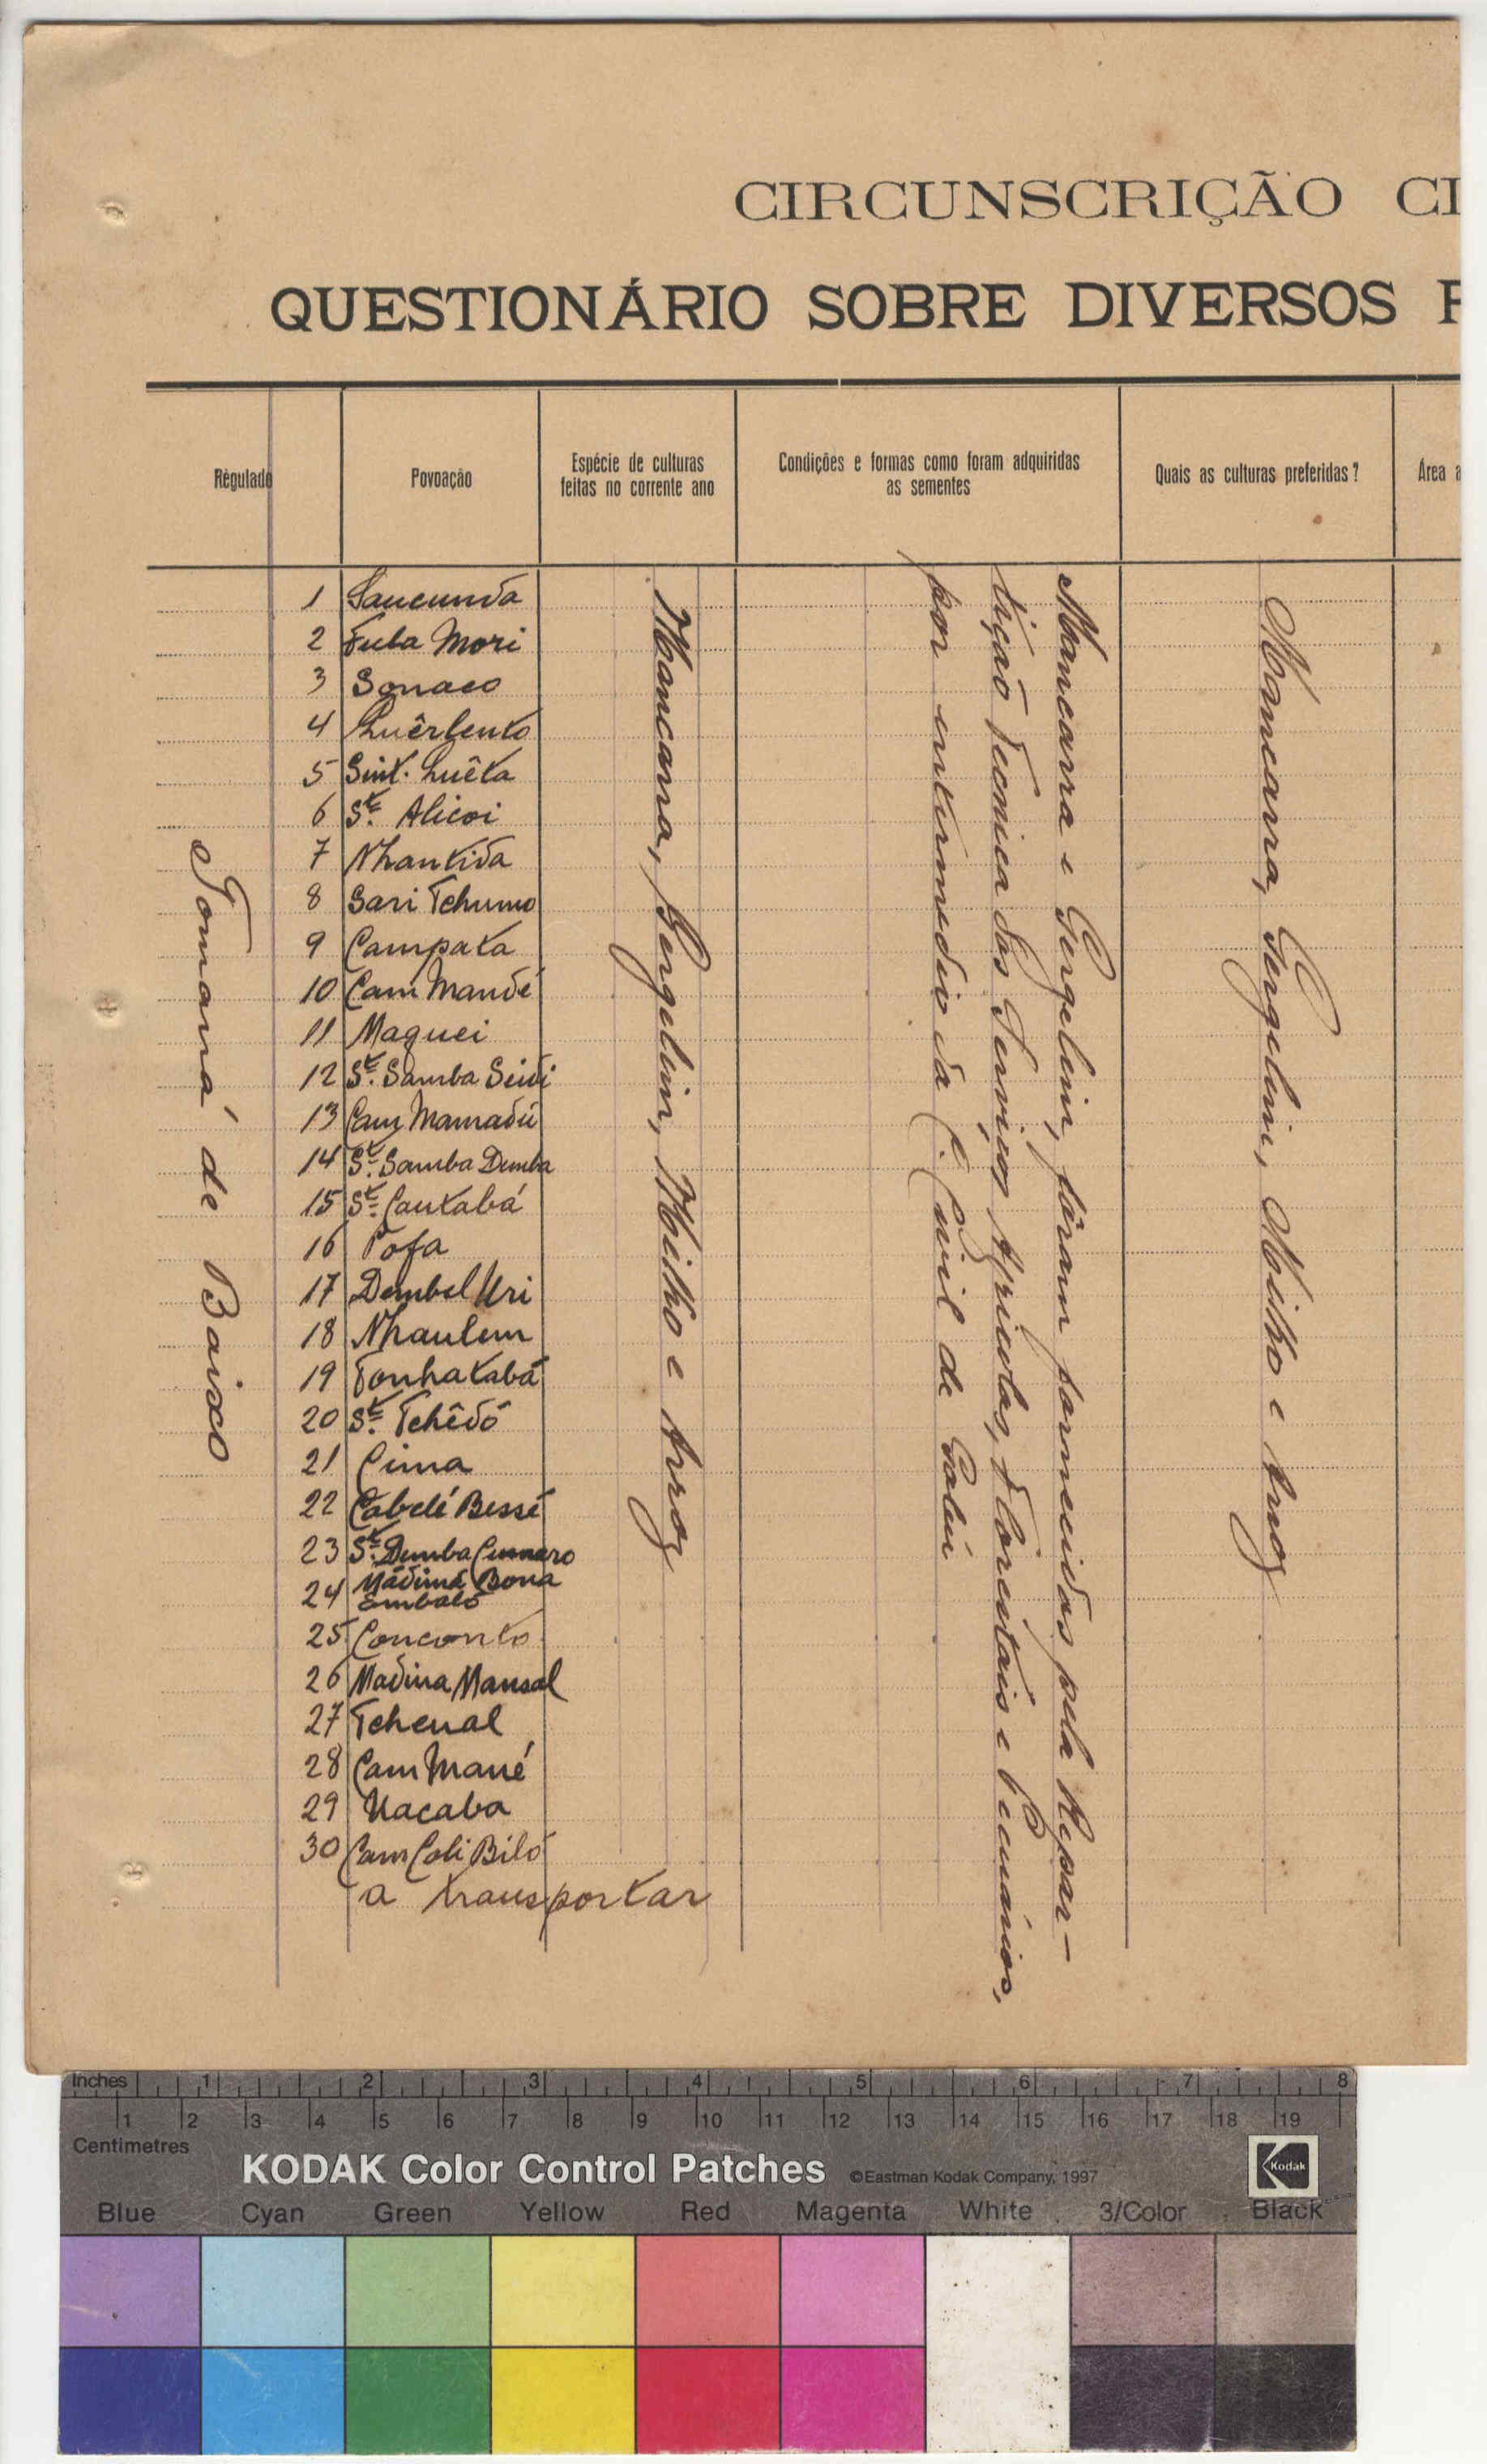 CIRCUNSCRIÇÃO CI
QUESTIONÁRIO SOBRE DIVERSOS
Régulado
Povoação
Espécie de culturas
feitas no corrente ano
Condições e formas como foram adquiridas
as sementes
Quais as culturas preferidas?
Área a
Tomaná de Baixo
1 Saucunda
2 Fuba Mori
3 Sonaco
4
5 Sint. Luêta
6 St. Alicoi
7 Nhantida
8 Sari Tchumo
9 Campata
10 Cam Mandé
11 Maquei
12 St. Samba Seidi
13 Cam Mamadú
14 St. Samba Demba
15 St. Cantabá
16 Pofa
17 Dembel Uri
18 Nhaulem
19 Tonhatabá
20 St. Tchêdó
21 Cima
22 Cabelé Bessé
23 St. Demba
24 Mádimá Bona
Embaló
25 Conconto
26 Madina Mansal
27 Tchenal
28 Cam Mané
29 Uacaba
30 Cam Coli Biló
a transportar
Mancarra, Gergelim, Milho e Arroz
Mancarra e Gergelim, foram fornecidas pela Repar-
tição Técnica dos Serviços Agricolas, Florestais e Pecuários,
por intermedio da C. Civil de Gabú
Mancarra, Gergelim, Milho e Arroz
Inches 1 2 3 4 5 6 7 8
1 2 3 4 5 6 7 8 9 10 11 12 13 14 15 16 17 18 19
Centimetres
KODAK Color Control Patches ©Eastman Kodak Company, 1997 Kodak
Blue Cyan Green Yellow Red Magenta White 3/Color Black